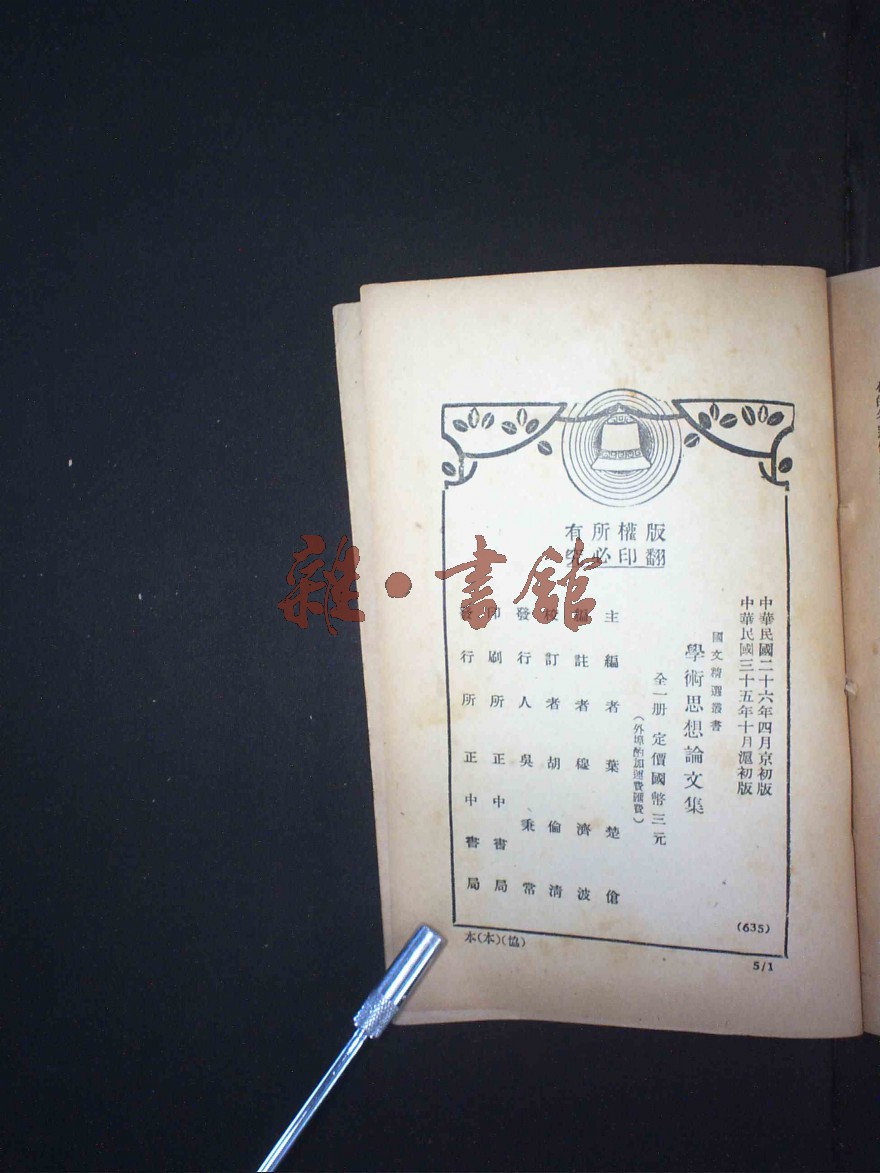 中華民國二十六年四月京初版
中華民國三十五年十月滬初版
國文精選叢書
學術思想論文集
全一册 定價國幣三元
(外埠酌加運費滙費)
版權所有
翻印必究
主編者 葉楚傖
編註者 穆濟波
校訂者 胡倫清
發行人 吳秉常
印刷所 正中書局
發行所 正中書局
(635)
本(本)(協)
5/1
雜·書館